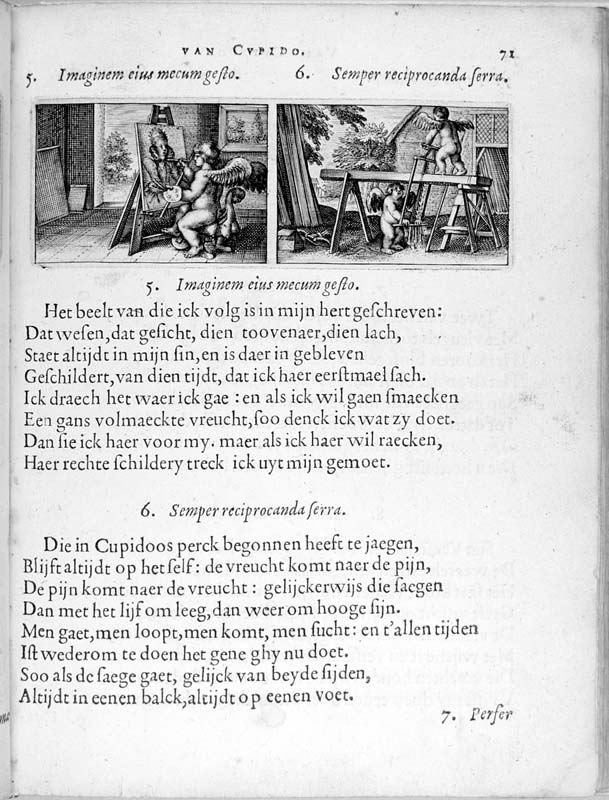 VAN CVPIDO. 71
5. Imaginem eius mecum gesto. 6. Semper reciprocanda serra.
5. Imaginem eius mecum gesto.
Het beelt van die ick volg is in mijn hert geschreven:
Dat wesen, dat gesicht, dien toovenaer, dien lach,
Staet altijdt in mijn sin, en is daer in gebleven
Geschildert, van dien tijdt, dat ick haer eerstmael sach.
Ick draech het waer ick gae: en als ick wil gaen smaecken
Een gans volmaeckte vreucht, soo denck ick wat zy doet.
Dan sie ick haer voor my. maer als ick haer wil raecken,
Haer rechte schildery treck ick uyt mijn gemoet.
6. Semper reciprocanda serra.
Die in Cupidoos perck begonnen heeft te jaegen,
Blijft altijdt op het self: de vreucht komt naer de pijn,
De pijn komt naer de vreucht: gelijckerwijs die saegen
Dan met het lijf om leeg, dan weer om hooge sijn.
Men gaet, men loopt, men komt, men sucht: en t'allen tijden
Ist wederom te doen het gene ghy nu doet.
Soo als de saege gaet, gelijck van beyde sijden,
Altijdt in eenen balck, altijdt op eenen voet.
7. Perfer